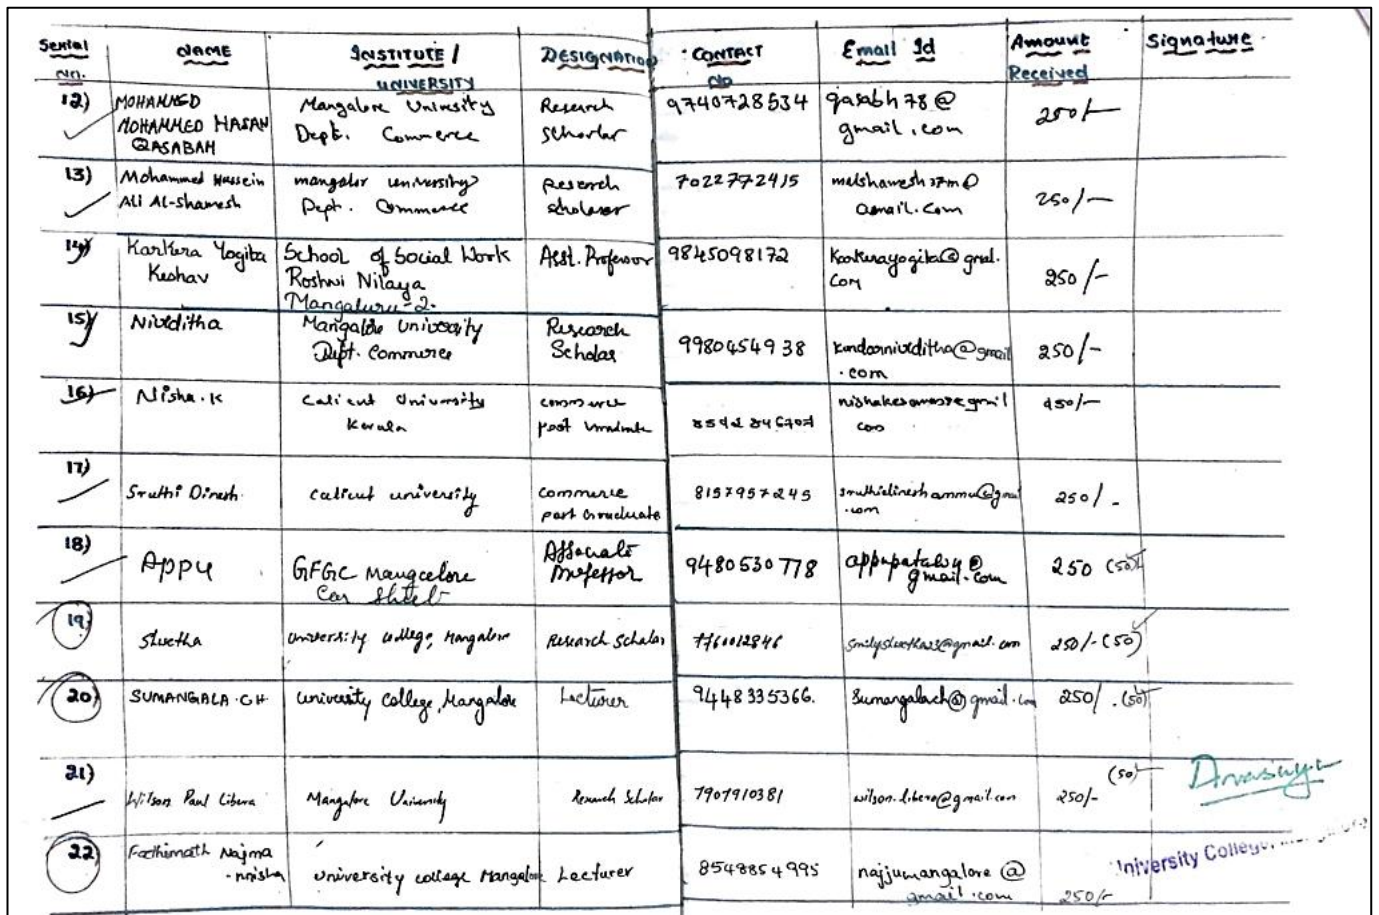 Serial No. NAME INSTITUTE / UNIVERSITY DESIGNATION CONTACT No Email Id Amount Received Signature
12) MOHAMMED MOHAMMED HASAN QASABAH Mangalore University Dept. Commerce Research Scholar 9740728534 qasabh78@gmail.com 250/-
13) Mohammed Hussein Ali Al-shamesh mangalor university Dept. Commerce Research scholar 7022772415 250/-
14) Karkera Yogita Keshav School of Social Work Roshni Nilaya Mangaluru-2. Asst. Professor 9845098172 250/-
15) Nivéditha Mangalore University Dept. Commerce Research Scholar 9980454938 250/-
16) Nisha.K Calicut University Kerala commerce post 250/-
17) Sruthi Dinesh Calicut university commerce post Graduate 8157957245 250/-
18) Appu GFGC Mangalore Car Associate Professor 9480530778 250 (50)
19) Shwetha University college, Mangalore Research Scholar 7760012846 250/- (50)
20) SUMANGALA.CH University college, Mangalore Lecturer 9448335366. sumangalach@gmail.com 250/. (50)
21) Wilson Paul Mangalore University Research Scholar 7907910381 250/- (50)
22) Fathimath Najma -nnisha University college Mangalore Lecturer 8548854995 najjumangalore@gmail.com 250/-
University College,